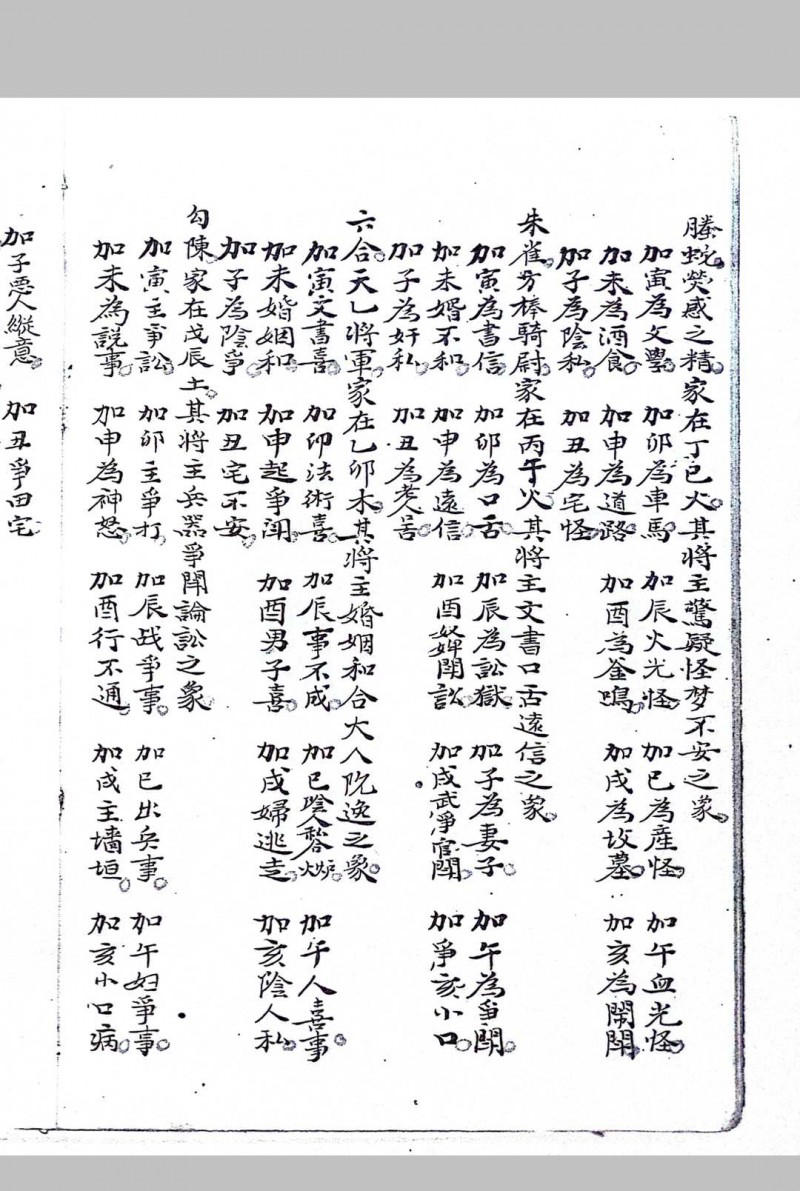 螣蛇熒惑之精家在丁巳火其將主驚疑怪梦不安之象
加寅為文璺 加卯為車馬 加辰火光怪 加巳為産怪 加午血光怪
加未為酒食 加申為道路 加酉為釜鳴 加戌為坟墓 加亥為鬧閗
加子為陰私 加丑為宅怪
朱雀方棒騎尉家在丙午火其將主文書口舌遠信之象
加寅為書信 加卯為口舌 加辰為訟獄 加子為妻子 加午為閗
加未婚不和 加申為遠信 加酉婢閗訟 加戌武爭官閗 加爭亥小口
加子為奸私 加丑為
六合天乚將軍家在乙卯木其將主婚姻和合大人阮逸之象
加寅文書喜 加卯法術喜 加辰事不成 加巳陰人 加午人喜事
加未婚姻和 加申起爭閗 加酉男子喜 加戌婦逃走 加亥陰人私
加子為陰爭 加丑宅不安
勾陳家在戊辰土其將主兵器爭閗論訟之象
加寅主爭訟 加卯主爭打 加辰战爭事 加巳出兵事 加午妇爭事
加未為説事 加申為神怒 加酉行不通 加戌主墻垣 加亥小口病
加子惡人縱意 加丑爭田宅